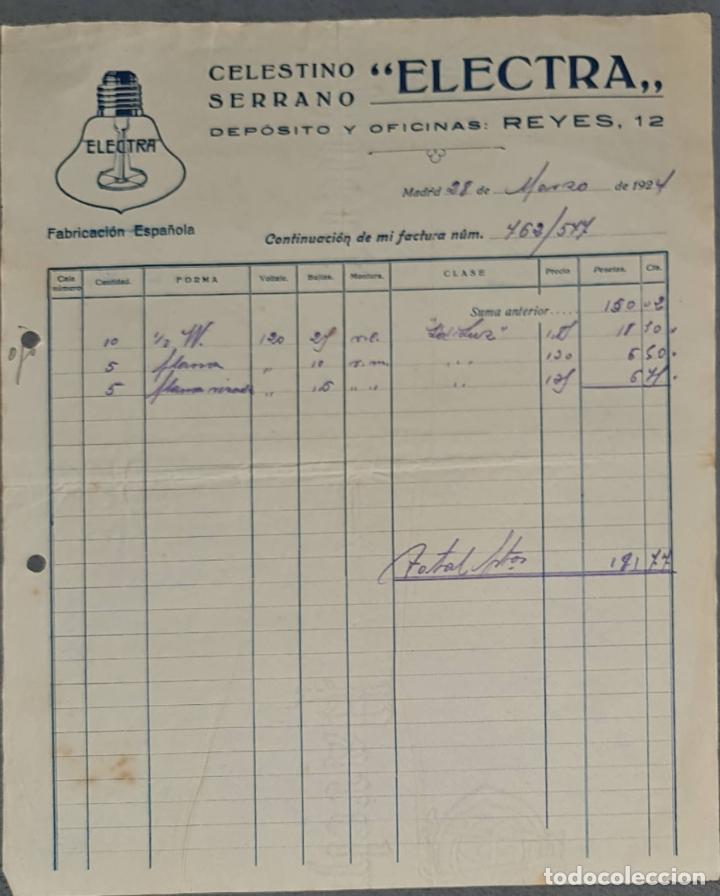 CELESTINO SERRANO "ELECTRA„
DEPÓSITO Y OFICINAS: REYES, 12
ELECTRA
Fabricación Española
Madrid 28 de Marzo de 1924
Continuación de mi factura núm. 762/577
Caja número Cantidad. FORMA Voltaje. Bujías. Montura. CLASE Precio Pesetas. Cts.
Suma anterior..... 150 02
10 ½ W. 120 25 "La Luz" 18 50
5 flama „ 10 „ „ 130 6 50
5 flama „ 15 „ „ „ „ 135 6 75
Total Ptas 181 77
todocoleccion